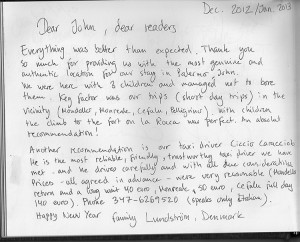 Dec. 2012/Jan. 2013
Dear John, dear readers
Everything was better than expected. Thank you
so much for providing us with the most genuine and
authentic location for our stay in Palermo, John.
We were here with 3 children and managed not to bore
them. Key factor was our trips (short day trips) in the
vicinity (Mondello, Monreale, Cefalu, Pellegrino). With children
the climb to the fort on la Rocca was perfect. An absolut
recommendation!
Another recommendation is our taxi driver Ciccio
He is the most reliable, friendly, trustworthy taxi driver we have
met - and he drives carefully and with all due consideration.
Prices - all agreed in advance - were very reasonable (Mondello
return and a long wait 40 euro, Monreale, 50 euro, Cefalu full day
140 euro). Phone 347-6269520 (speaks only Italian).
Happy New Year family Lundström, Denmark